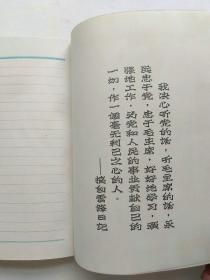 我决心听党的话，听毛主席的话，永
远忠于党，忠于毛主席，好好地学习，顽
强地工作，为党和人民的事业贡献自己的
一切，作一个毫无利己之心的人。
——摘自雷锋日记